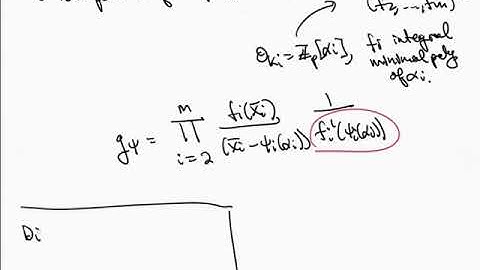 (f₂,...,fₘ)
O_{K_i} = ℤ_p[α_i], f_i integral
minimal poly
of α_i.
g_ψ = ∏_{i=2}^{m} f_i(x̄_i) / (x̄_i − ψ_i(α_i)) · 1 / f_i'(ψ_i(α_i))
D_i